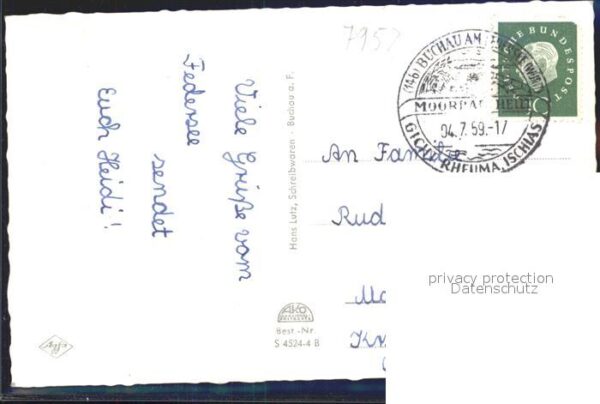 Viele Grüße vom
Federsee
sendet
Euch Heidi!
7952
Hans Lutz, Schreibwaren - Buchau a. F.
AKO
Best.-Nr.
S 4524-4 B
Agfa
(14b) BUCHAU AM
MOORBAD HEILT
04.7.59.-17
GICHT RHEUMA ISCHIAS
BUNDESPOST
10
An Familie
Rud
privacy protection
Datenschutz